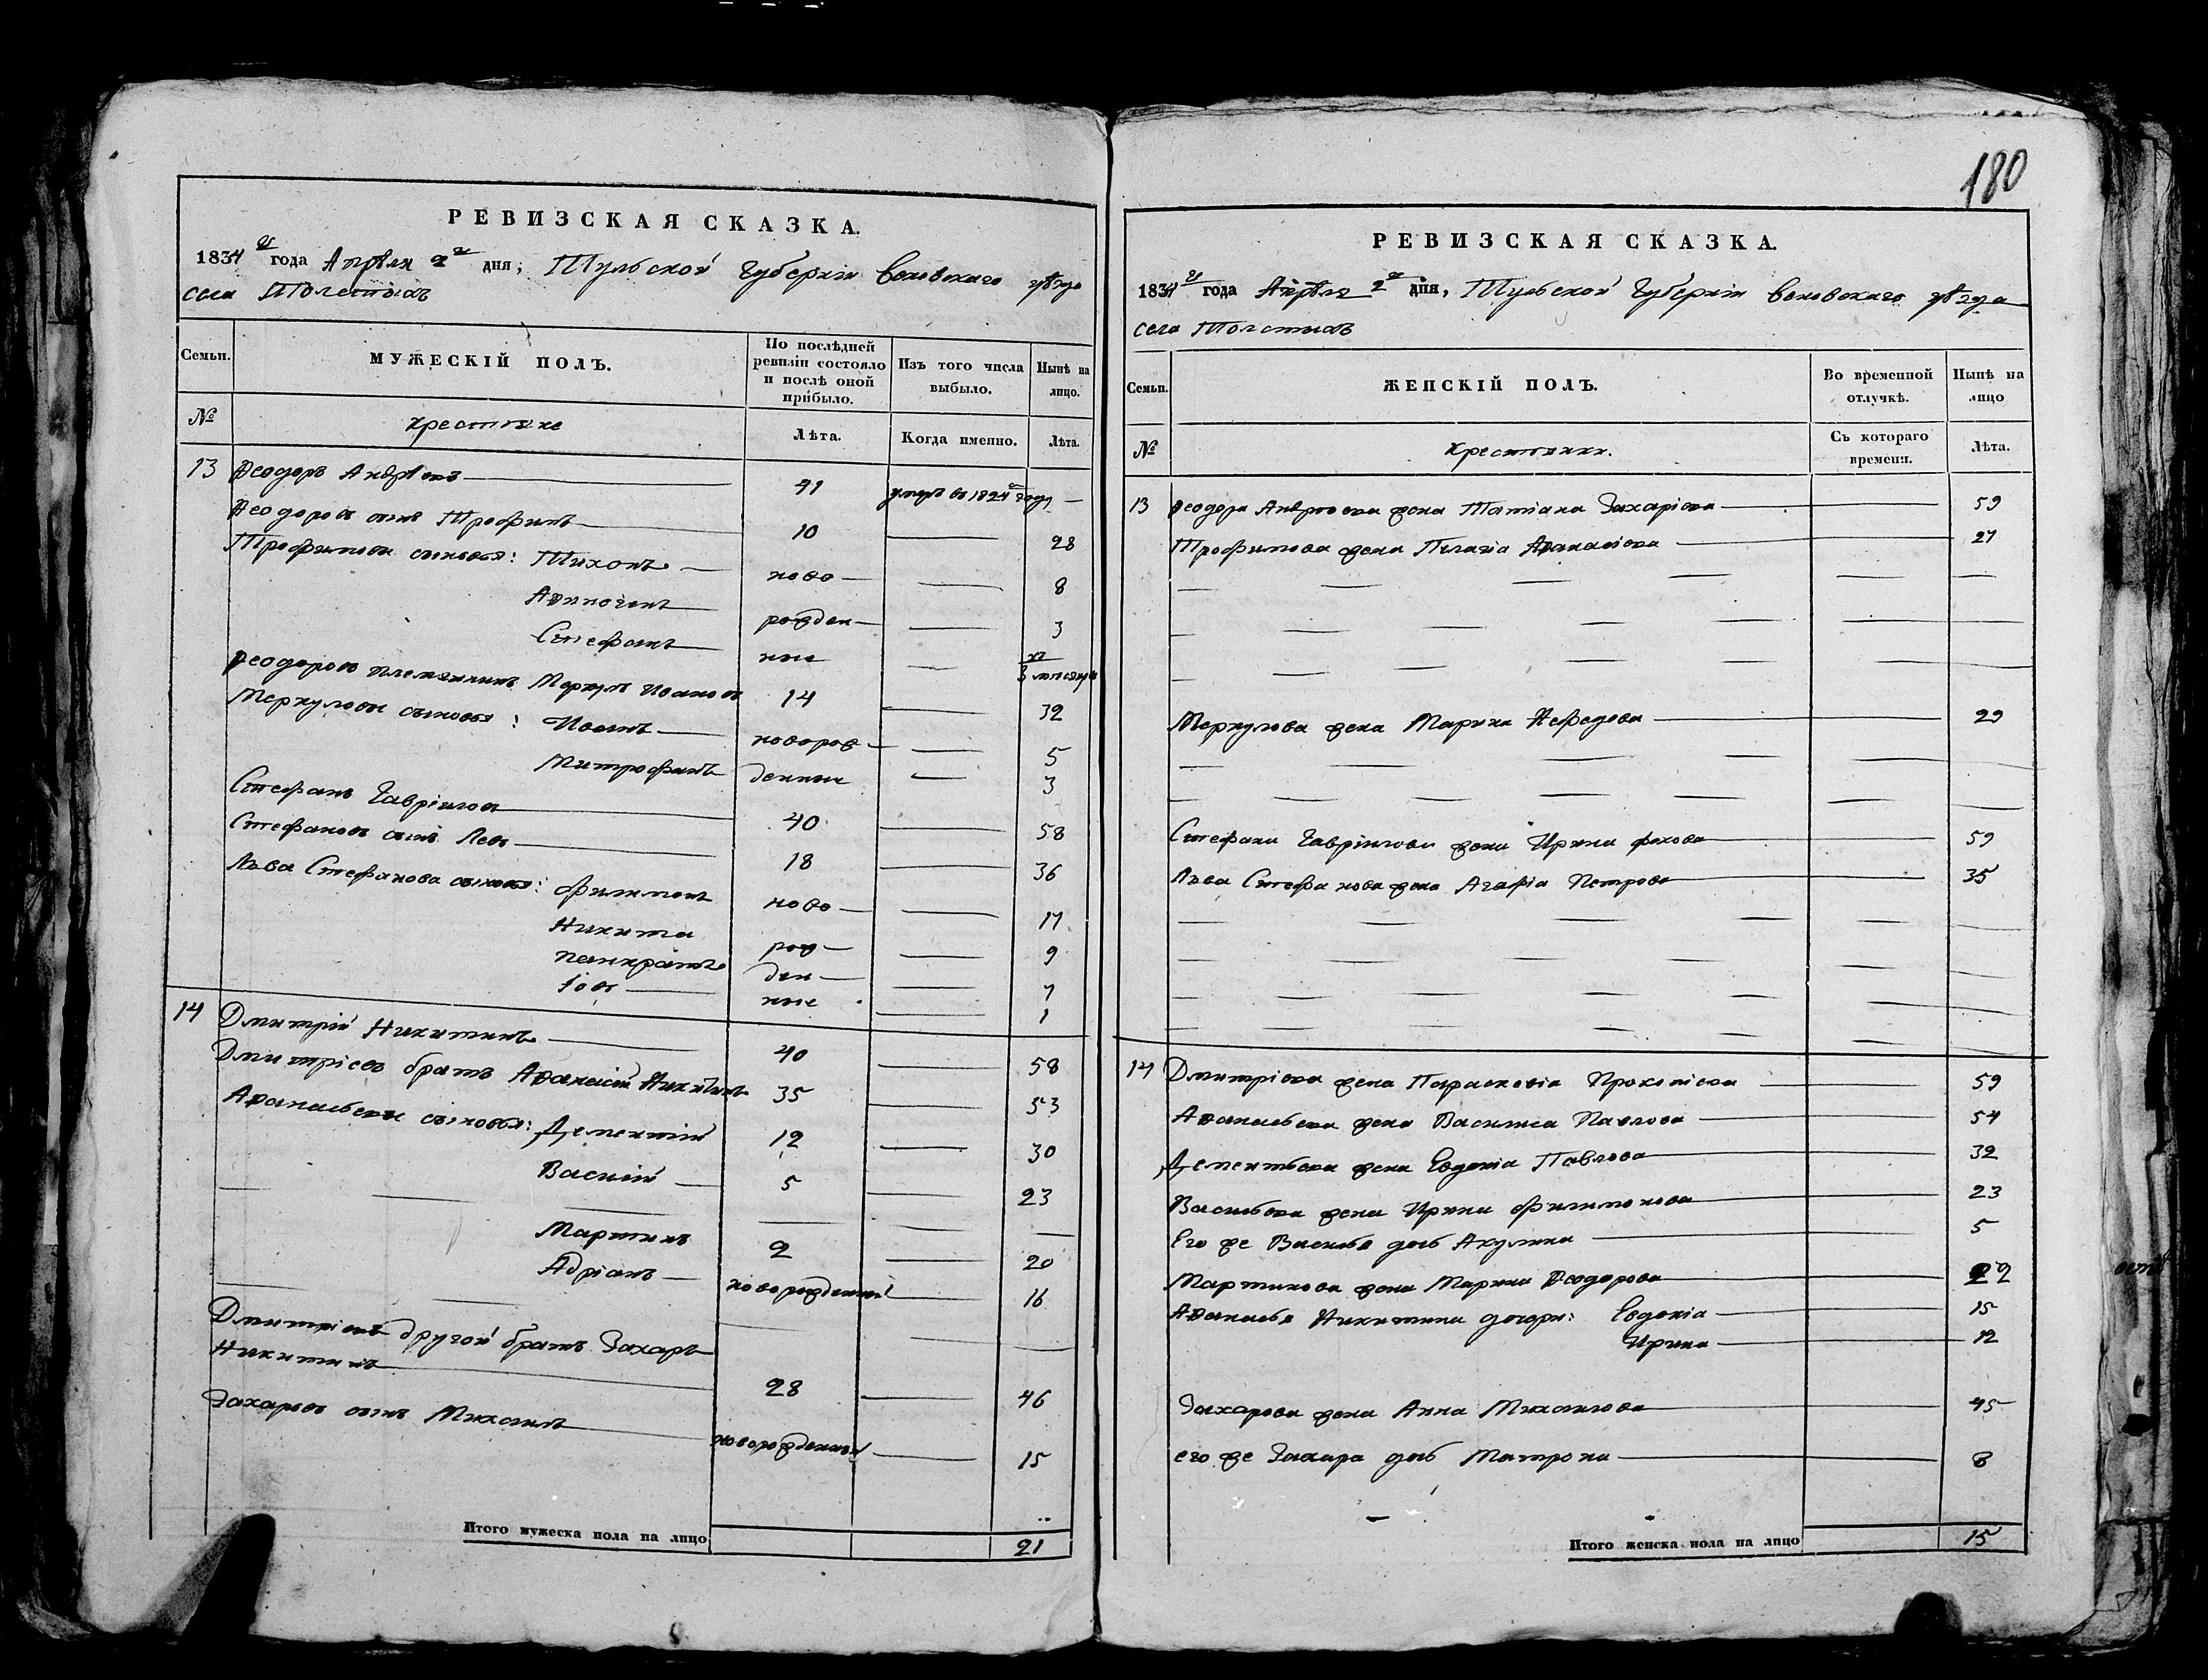 180
РЕВИЗСКАЯ СКАЗКА.
1834го года Апрѣля 2го дня, Тульской Губерніи Веневскаго уѣзда
села Толстыхъ
Семьи. МУЖЕСКІЙ ПОЛЪ. По послѣдней ревизіи состояло и послѣ оной прибыло. Изъ того числа выбыло. Нынѣ на лицо.
№ Крестьяне Лѣта. Когда именно. Лѣта.
13 Ѳеодоръ Андрѣевъ 41 умеръ въ 1824м году
Ѳеодоровъ сынъ Трофимъ 10 28
Трофимовы сыновья: Тихонъ ново 8
Аѳиногенъ рожден 3
Стефанъ ные 3 месяцы
Ѳеодоровъ племянникъ Меркулъ Ивановъ 14 32
Меркуловы сыновья: Иванъ новорож 5
Митрофанъ денные 3
Стефанъ Гавріиловъ 40 58
Стефановъ сынъ Левъ 18 36
Льва Стефанова сыновья: Филимонъ ново 17
Никита рож 9
Панкратъ ден 7
Іовъ ные 1
14 Дмитрій Никитинъ 40 58
Дмитріевъ братъ Аѳанасій Никитинъ 35 53
Аѳанасьевы сыновья: Дементій 12 30
Василій 5 23
Мартинъ 2 20
Адріанъ новорожденный 16
Дмитріевъ другой братъ Захаръ
Никитинъ 28 46
Захаровъ сынъ Михаилъ новорожденный 15
Итого мужеска пола на лицо 21
РЕВИЗСКАЯ СКАЗКА.
1834го года Апрѣля 2го дня, Тульской Губерніи Веневскаго уѣзда
села Толстыхъ
Семьи. ЖЕНСКІЙ ПОЛЪ. Во временной отлучкѣ. Нынѣ на лицо
№ Крестьянки. Съ котораго времени. Лѣта.
13 Ѳеодора Андреева жена Татіана Захаріева 59
Трофимова жена Пелагіа Аѳанасіева 27
Меркулова жена Марина Нефедова 29
Стефана Гавріилова жена Ирина Фокова 59
Льва Стефанова жена Агафіа Петрова 35
14 Дмитріева жена Парасковіа Прокопіева 59
Аѳанасьева жена Василиса Павлова 54
Дементьева жена Евдокіа Павлова 32
Васильева жена Ирина Филимонова 23
Его же Василья дочь Акулина 5
Мартинова жена Марина Ѳеодорова 22
Аѳанасья Никитина дочери: Евдокіа 15
Ирина 12
Захарова жена Анна Михаилова 45
его же Захара дочь Матрона 8
Итого женска пола на лицо 15